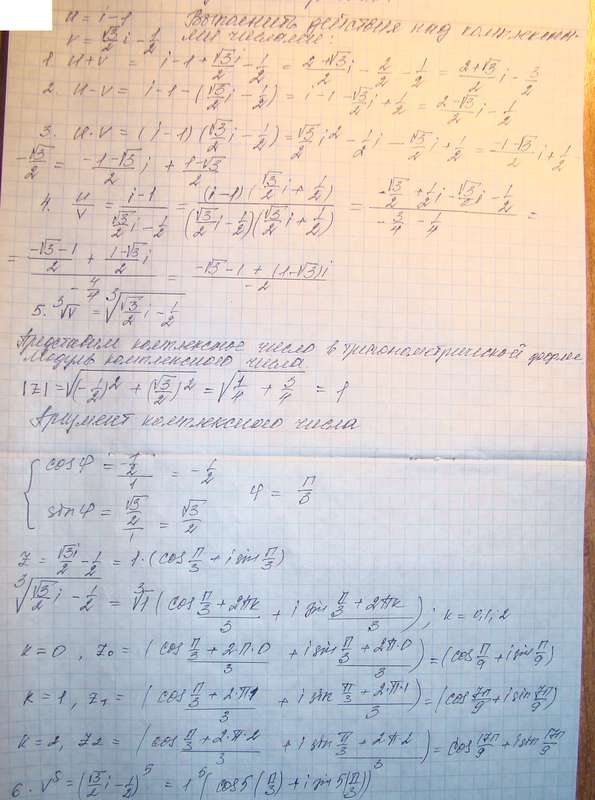 u = i-1 Выполнить действия над комплексны-
v = √3/2 i - 1/2 ми числами:
1. u+v = i-1+√3/2 i - 1/2 = (2+√3)/2 i - 2/2 - 1/2 = (2+√3)/2 i - 3/2
2. u-v = i-1-(√3/2 i - 1/2) = i-1-√3/2 i + 1/2 = (2-√3)/2 i - 1/2
3. u·v = (i-1)(√3/2 i - 1/2) = √3/2 i² - 1/2 i - √3/2 i + 1/2 = (-1-√3)/2 i + 1/2
-√3/2 = (-1-√3)/2 i + (1-√3)/2
4. u/v = (i-1)/(√3/2 i - 1/2) = ((i-1)(√3/2 i + 1/2))/((√3/2 i - 1/2)(√3/2 i + 1/2)) = (-√3/2 + 1/2 i - √3/2 i - 1/2)/(-3/4 - 1/4) =
= ((-√3-1)/2 + (1-√3)/2 i)/(-4/4) = (-√3-1+(1-√3)i)/(-2)
5. ³√v = ³√(√3/2 i - 1/2)
Представим комплексное число в тригонометрической форме
Модуль комплексного числа.
|z| = √((-1/2)² + (√3/2)²) = √(1/4 + 3/4) = 1
Аргумент комплексного числа
{ cosφ = (-1/2)/1 = -1/2
φ = π/3
sinφ = (√3/2)/1 = √3/2
z = √3i/2 - 1/2 = 1·(cos π/3 + i sin π/3)
³√(√3/2 i - 1/2) = ³√1 (cos (π/3+2πk)/3 + i sin (π/3+2πk)/3); k=0,1,2
k=0, z₀ = (cos (π/3+2·π·0)/3 + i sin (π/3+2π·0)/3) = (cos π/9 + i sin π/9)
k=1, z₁ = (cos (π/3+2·π1)/3 + i sin (π/3+2π·1)/3) = (cos 7π/9 + i sin 7π/9)
k=2, z₂ = (cos (π/3+2·π·2)/3 + i sin (π/3+2π2)/3) = cos 17π/9 + i sin 17π/9
6. v⁵ = (√3/2 i - 1/2)⁵ = 1⁵(cos5(π/3) + i sin5(π/3))